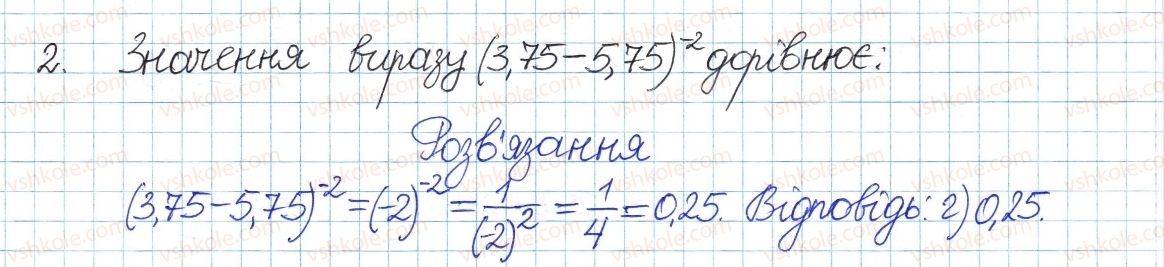 2. Значення виразу (3,75-5,75)⁻² дорівнює:
Розв'язання
(3,75-5,75)⁻² = (-2)⁻² = 1/(-2)² = 1/4 = 0,25. Відповідь: г) 0,25.